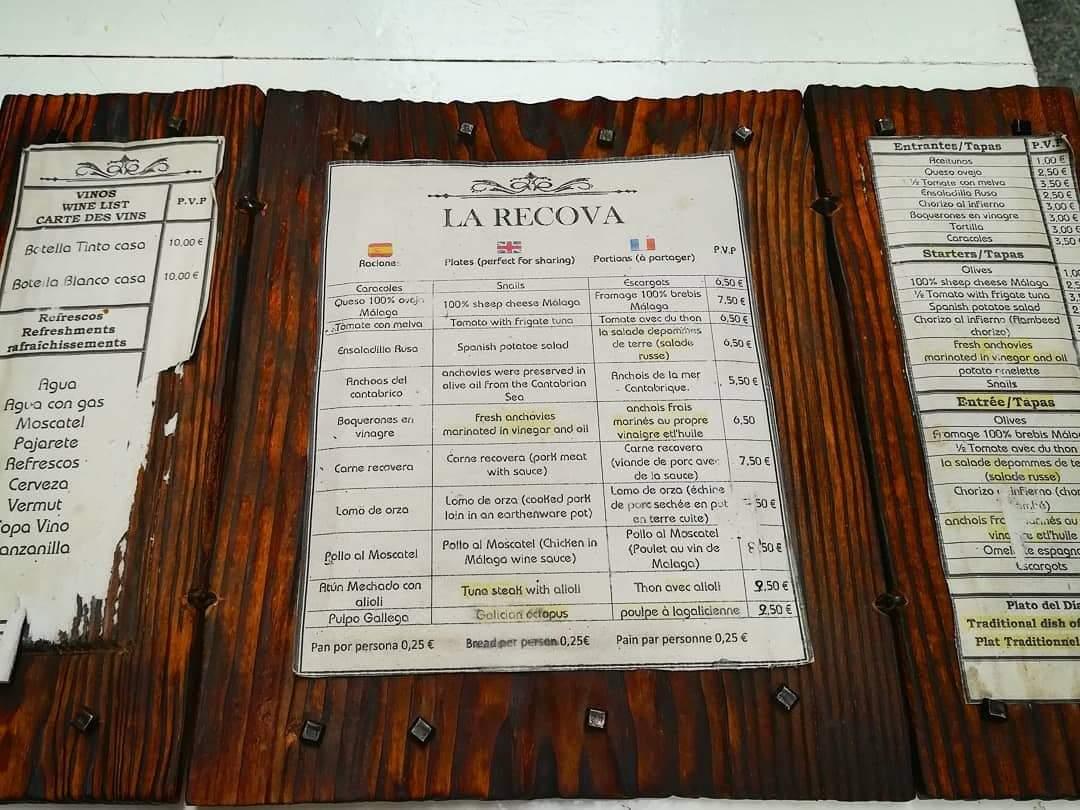 VINOS
WINE LIST
CARTE DES VINS
P.V.P
Botella Tinto casa 10,00 €
Botella Blanco casa 10,00 €
Refrescos
Refreshments
rafraîchissements
Agua
Agua con gas
Moscatel
Pajarete
Refrescos
Cerveza
Vermut
opa Vino
anzanilla
LA RECOVA
Raciones Plates (perfect for sharing) Portions (à partager) P.V.P
Caracoles Snails Escargots 6,50 €
Queso 100% oveja Málaga 100% sheep cheese Málaga Fromage 100% brebis Málaga 7,50 €
Tomate con melva Tomato with frigate tuna Tomate avec du thon 6,50 €
Ensaladilla Rusa Spanish potatoe salad la salade depommes de terre (salade russe) 6,50 €
Anchoas del cantabrico anchovies were preserved in alive oil from the Cantabrian Sea Anchois de la mer Cantabrique. 5,50 €
Boquerones en vinagre Fresh anchovies marinated in vinegar and oil anchois frais marinés au propre vinaigre etl'huile 6,50
Carne recovera Carne recovera (pork meat with sauce) Carne recovera (viande de porc avec de la sauce) 7,50 €
Lomo de orza Lomo de orza (cooked pork loin in an earthenware pot) Lomo de orza (échine de porc sechée en pot en terre cuite) 50 €
Pollo al Moscatel Pollo al Moscatel (Chicken in Málaga wine sauce) Pollo al Moscatel (Poulet au vin de Malaga) 8,50 €
Atún Mechado con alioli Tuna steak with alioli Thon avec alioli 9,50 €
Pulpo Gallega Galician octopus poulpe à lagalicienne 9,50 €
Pan por persona 0,25 € Bread per person 0,25€ Pain par personne 0,25 €
Entrantes/Tapas P.V.P
Aceitunas 1,00 €
Queso oveja 2,50 €
½ Tomate con melva 3,50 €
Ensaladilla Rusa 2,50 €
Chorizo al infierno 3,00 €
Boquerones en vinagre 3,00 €
Tortilla 3,00 €
Caracoles 3,50 €
Starters/Tapas
Olives 1,00
100% sheep cheese Málaga
½ Tomato with frigate tuna
Spanish potatoe salad
Chorizo al infierno (flambeed
chorizo)
Fresh anchovies
marinated in vinegar and oil
potato omelette
Snails
Entrée/Tapas
Olives
Fromage 100% brebis Málag
½ Tomate avec du thon
la salade depommes de te
(salade russe)
Chorizo infierno (chor
anchois
vinaigre etl'huile
Omel espagno
Escargots
Plato del Día
Traditional dish of
Plat Traditionnel